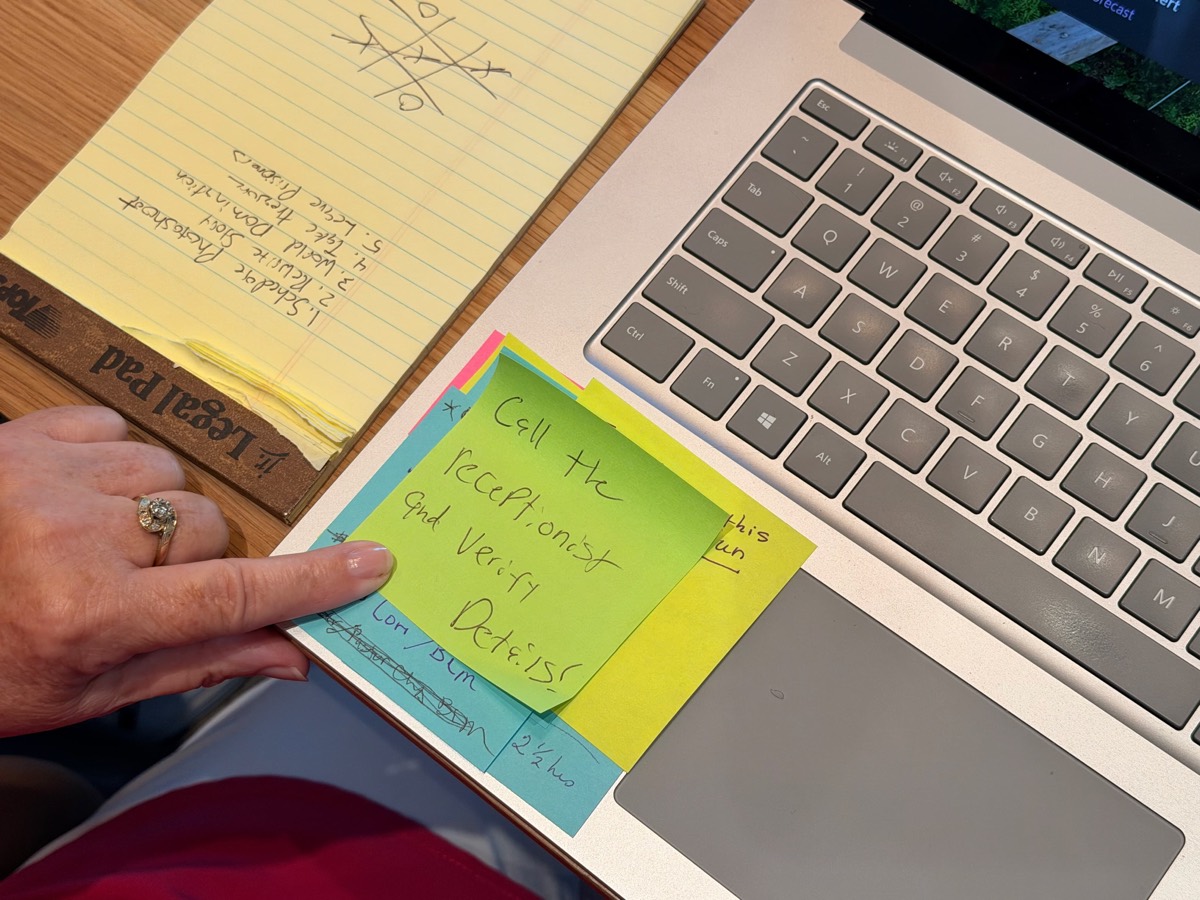 Call the
receptionist
and Verify
Details!
this
Lori / BLM
2 1/2 hrs
1. Schedule Photoshoot
2. Rewrite Story
3. World Domination
4. Type Resume
5. Leave Prison
jr. Legal Pad
TOPS
forecast
Esc
F1
F2
F3
F4
F5
F6
~ `
! 1
@ 2
# 3
$ 4
% 5
^ 6
Tab
Q
W
E
R
T
Y
U
Caps
A
S
D
F
G
H
J
Shift
Z
X
C
V
B
N
M
Ctrl
Fn
Alt